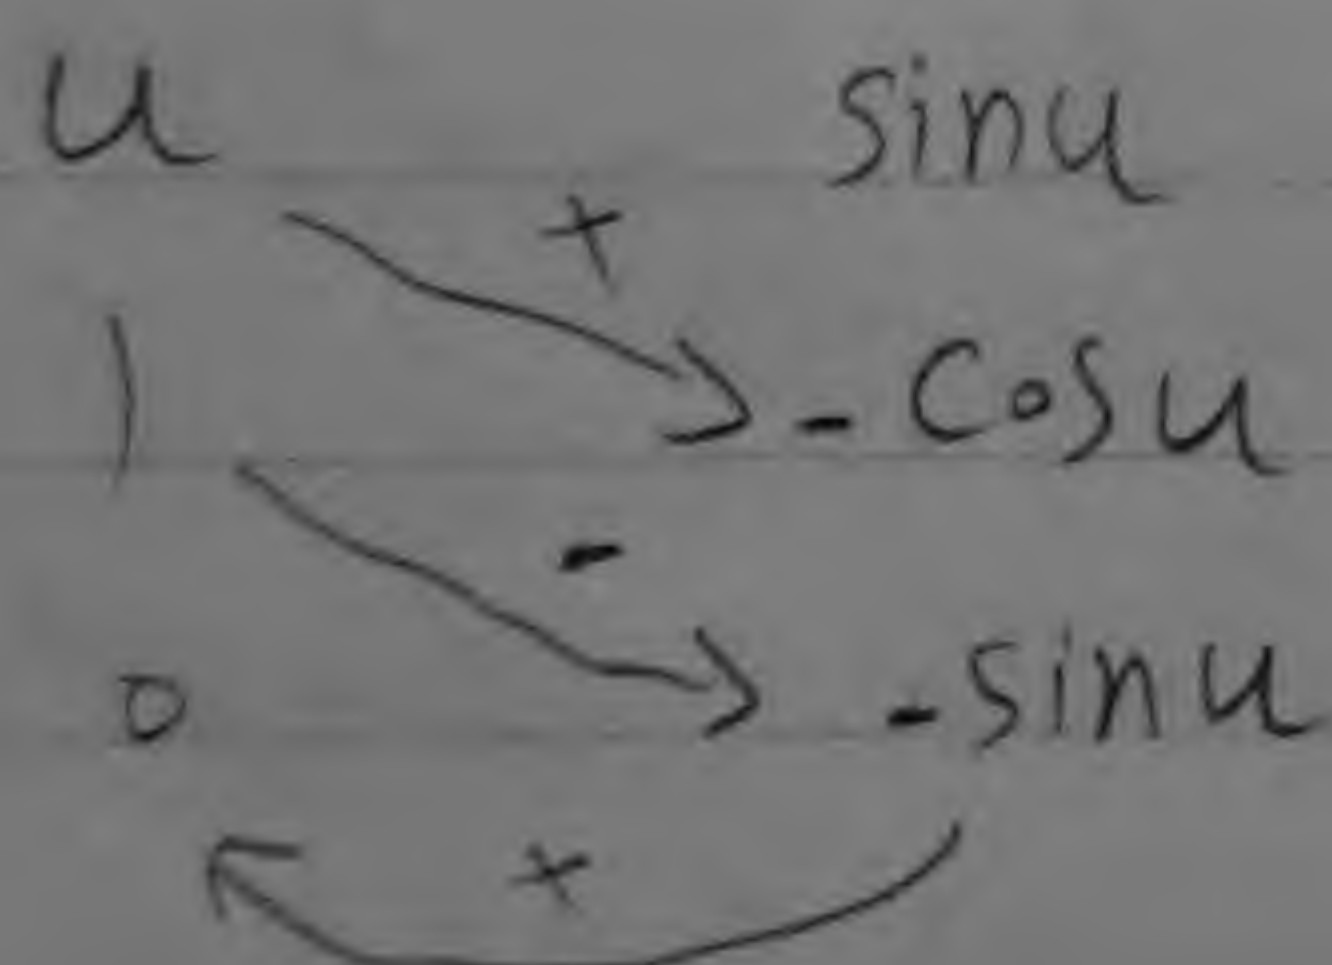 u sinu
+
1 -cosu
-
0 -sinu
+